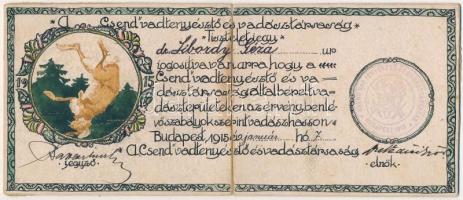 A Csend vadtenyésztő és vadásztársaság
Tiszteletjegy
de Géza úr
jogosítva van arra hogy a
Csend vadtenyésztő és va-
dásztársaság által bérelt va-
dászterületeken az érvényben lé-
vő szabályok szerint vadászhasson
Budapest, 1915 január hó 7.
A Csend vadtenyésztő és vadásztársaság
19 15
jegyző
elnök